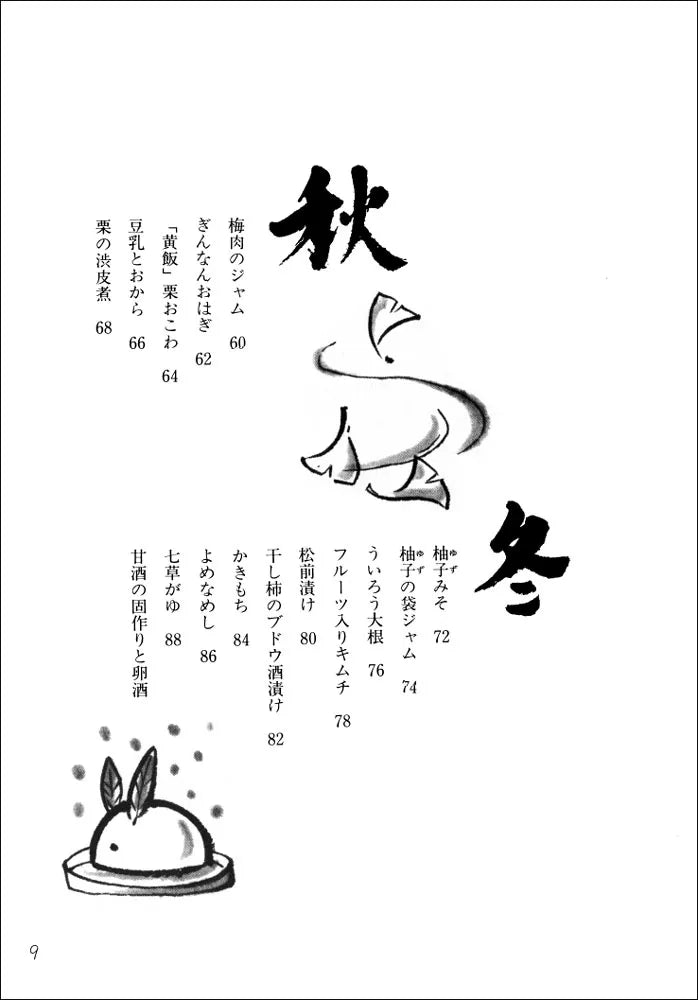 秋
梅肉のジャム 60
ぎんなんおはぎ 62
「黄飯」栗おこわ 64
豆乳とおから 66
栗の渋皮煮 68
冬
柚子みそ 72
ゆず
柚子の袋ジャム 74
ゆず
ういろう大根 76
フルーツ入りキムチ 78
松前漬け 80
干し柿のブドウ酒漬け 82
かきもち 84
よめなめし 86
七草がゆ 88
甘酒の固作りと卵酒
9